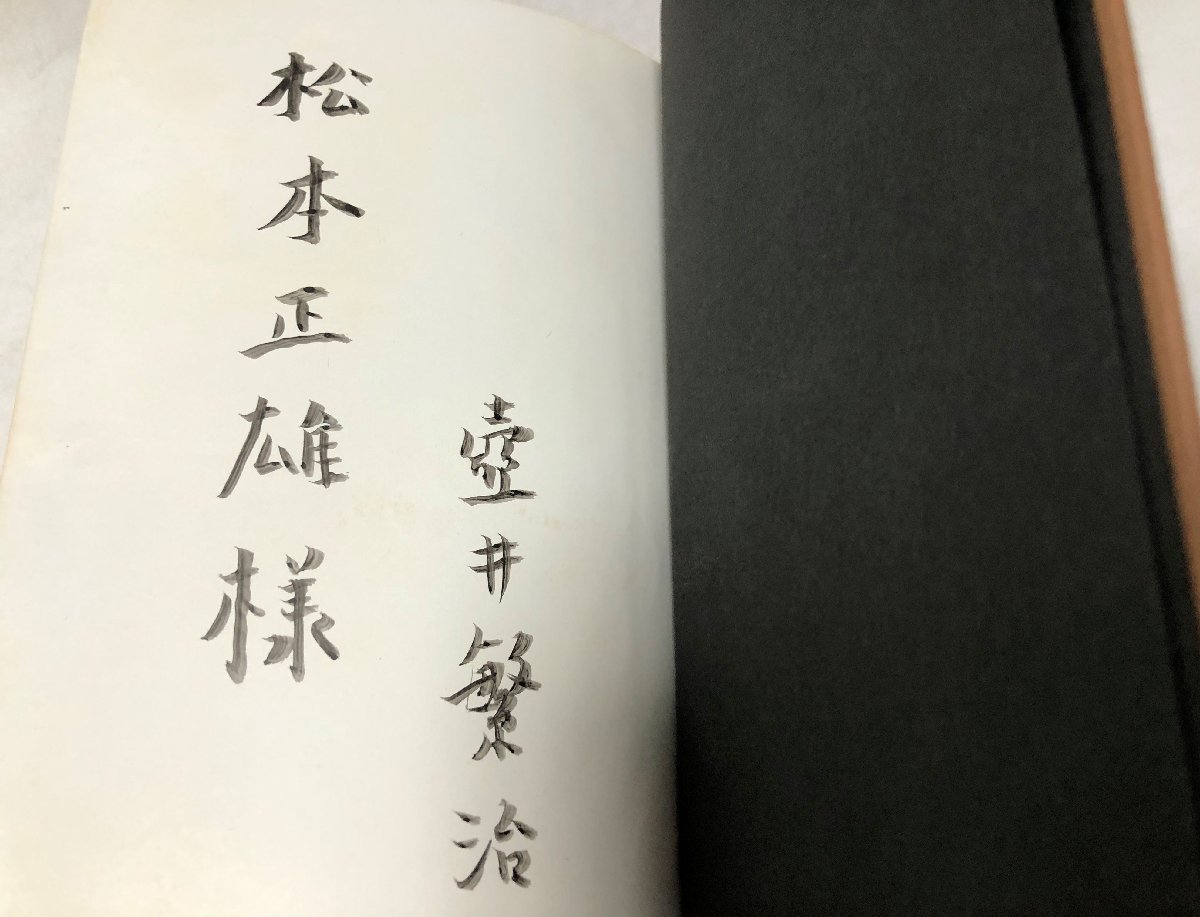 壺井繁治
松本正雄様